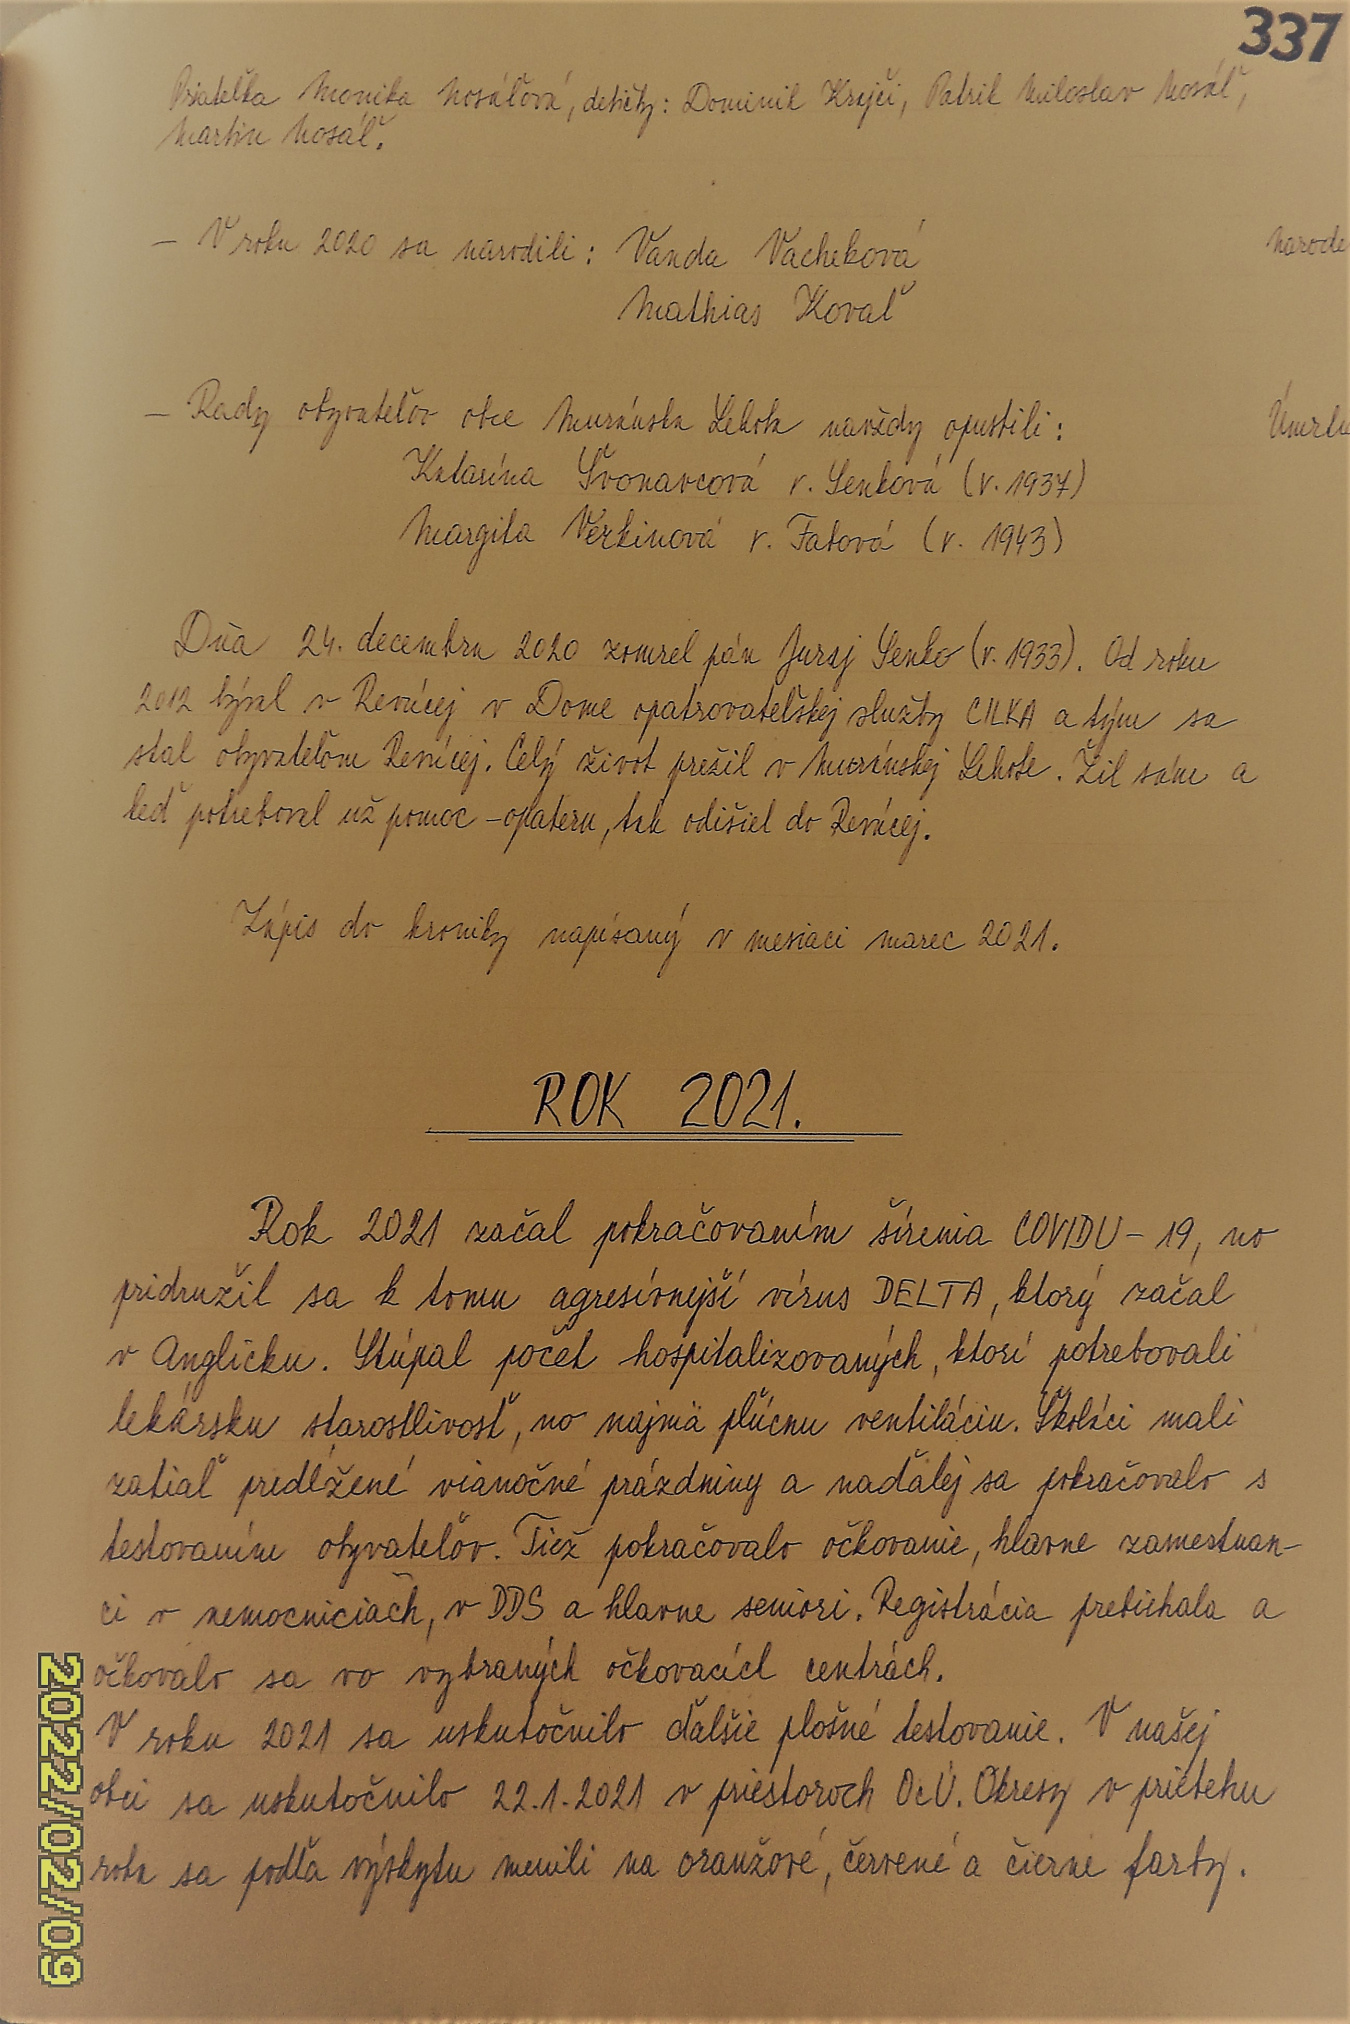 337
Priateľka Monika Mosáľová, detičky: Dominik Krajči, Patrik Miloslav Mosáľ,
Martin Mosáľ.
– V roku 2020 sa narodili: Vanda Vacheková
narode
Mathias Kovaľ
– Rady obyvateľov obce Muránska Lehota navždy opustili:
Úmrtu
Katarína Švonavcová r. Senková (r. 1937)
Margita Verkinová r. Fatová (r. 1943)
Dňa 24. decembra 2020 zomrel pán Juraj Senko (r. 1933). Od roku
2012 býval v Revúcej v Dome opatrovateľskej služby CILKA a tým sa
stal obyvateľom Revúcej. Celý život prežil v Muránskej Lehote. Žil sám a
keď potreboval už pomoc – opateru, tak odišiel do Revúcej.
Zápis do kroniky napísaný v mesiaci marec 2021.
ROK 2021.
Rok 2021 začal pokračovaním šírenia COVIDU – 19, no
pridružil sa k tomu agresívnejší vírus DELTA, ktorý začal
v Anglicku. Stúpal počet hospitalizovaných, ktorí potrebovali
lekársku starostlivosť, no najmä pľúcnu ventiláciu. Školáci mali
zatiaľ predĺžené vianočné prázdniny a naďalej sa pokračovalo s
testovaním obyvateľov. Tiež pokračovalo očkovanie, hlavne zamestnan-
ci v nemocniciach, v DDS a hlavne seniori. Registrácia prebiehala a
očkovalo sa vo vybraných očkovacích centrách.
V roku 2021 sa uskutočnilo ďalšie plošné testovanie. V našej
obci sa uskutočnilo 22.1.2021 v priestoroch OcÚ. Okresy v priebehu
roka sa podľa výskytu menili na oranžové, červené a čierne farby.
2022/02/09